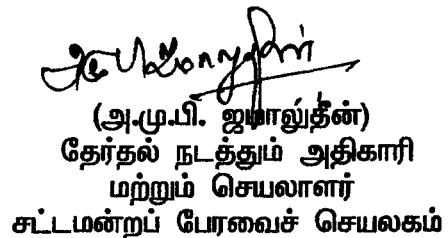 (அ.மு.பி. ஜமாலுதீன்)
தேர்தல் நடத்தும் அதிகாரி
மற்றும் செயலாளர்
சட்டமன்றப் பேரவைச் செயலகம்